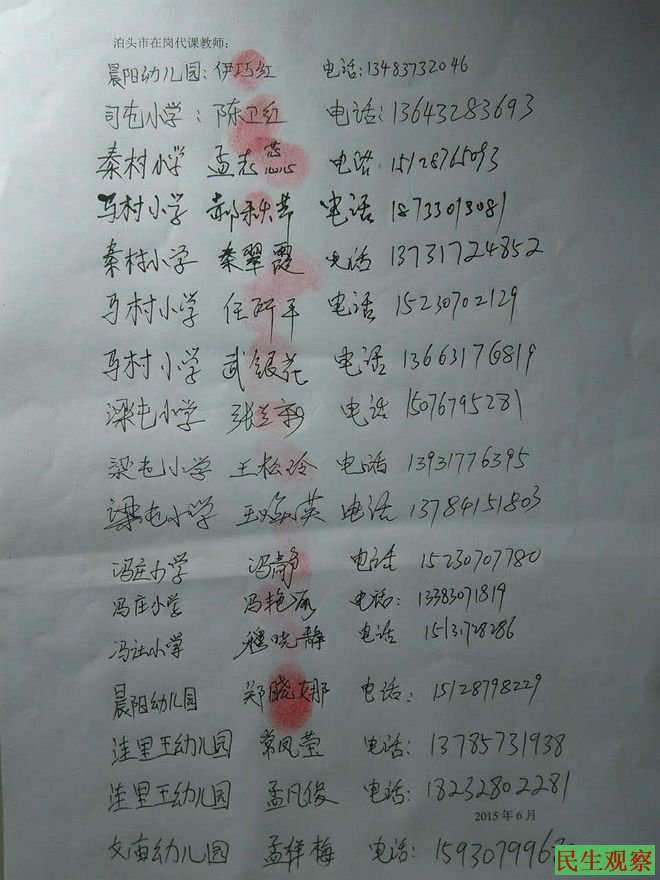 泊头市在岗代课教师:
晨阳幼儿园:伊巧红 电话:13483732046
司屯小学:陈卫红 电话:13643283693
秦村小学 孟志蕊 电话 15128765093
马村小学 郝秋芊 电话 18733013081
秦村小学 秦翠霞 电话 13731724852
马村小学 任所平 电话 15230702129
马村小学 武银花 电话 13663176819
梁屯小学 张立新 电话 15076795281
梁屯小学 王松玲 电话 13931776395
梁屯小学 王焕英 电话 13784151803
冯庄小学 冯静 电话 15230707780
冯庄小学 冯艳 电话: 13383071819
冯庄小学 晓静 电话 15131728286
晨阳幼儿园 郑晓娜 电话: 15128798229
洼里王幼儿园 常凤莹 电话: 13785731938
洼里王幼儿园 孟凡俊 电话: 18232802281
2015年6月
文庙幼儿园 孟祥梅 电话:
民生观察